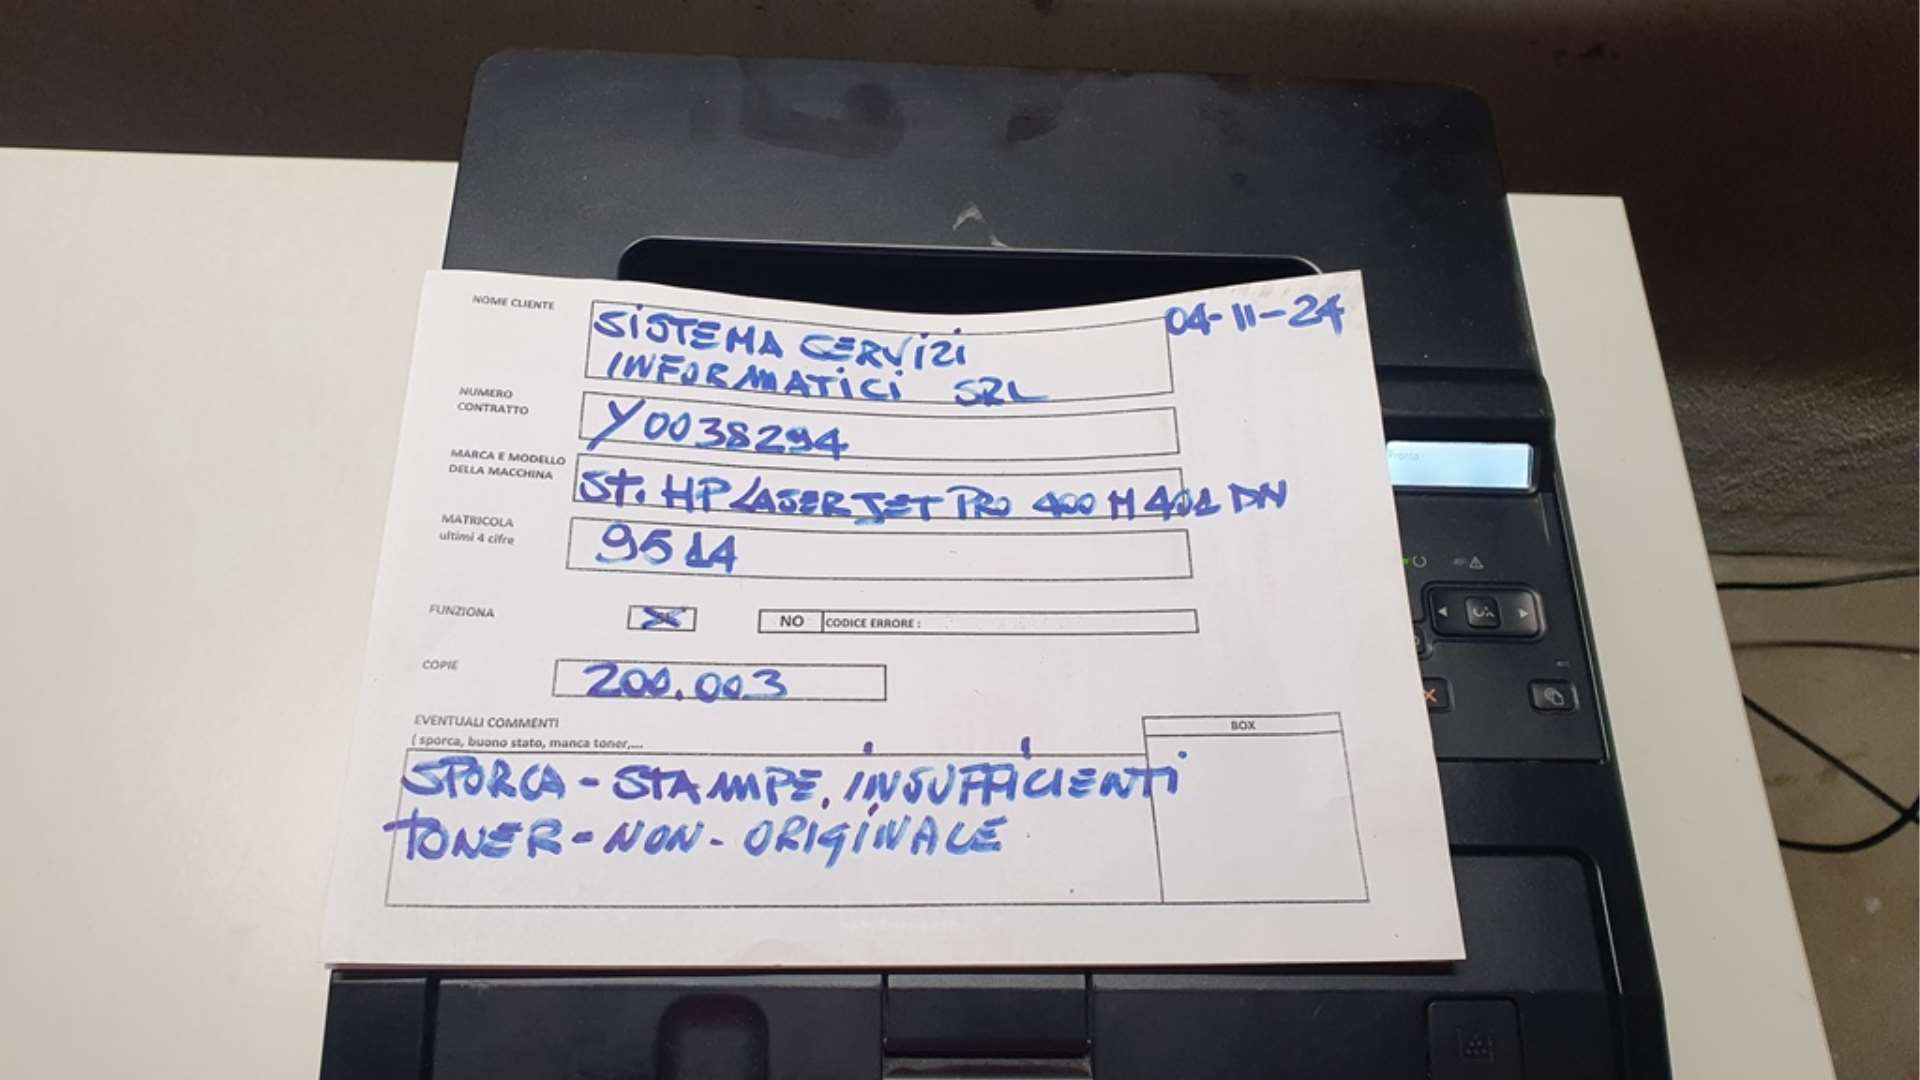 NOME CLIENTE
SISTEMA SERVIZI
INFORMATICI SRL
04-11-24
NUMERO
CONTRATTO
Y0038294
MARCA E MODELLO
DELLA MACCHINA
St. HP LASERJET PRO 400 M 401 DN
MATRICOLA
ultimi 4 cifre
9514
FUNZIONA
NO
CODICE ERRORE :
COPIE
200.003
EVENTUALI COMMENTI
( sporca, buono stato, manca toner,...
BOX
SPORCA - STAMPE. INSUFFICIENTI
TONER - NON - ORIGINALE
Pronto
OK